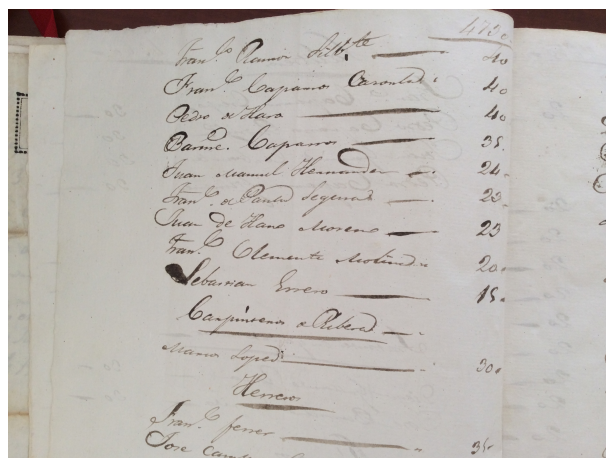 473
Fran.co Ramon Silb.te 40
Fran.co Caparros 40
Pedro de Haro 40
Barme. Caparros 35.
Juan Manuel Hernandez 24
Fran.co de Paula Segura 23
Juan de Haro Moreno 23
Fran.co Clemente Molina 20
Sebastian Errero 15
Carpinteros de Ribera
Marcos Lopez 30
Herreros
Fran.co ferrer 35
Jose